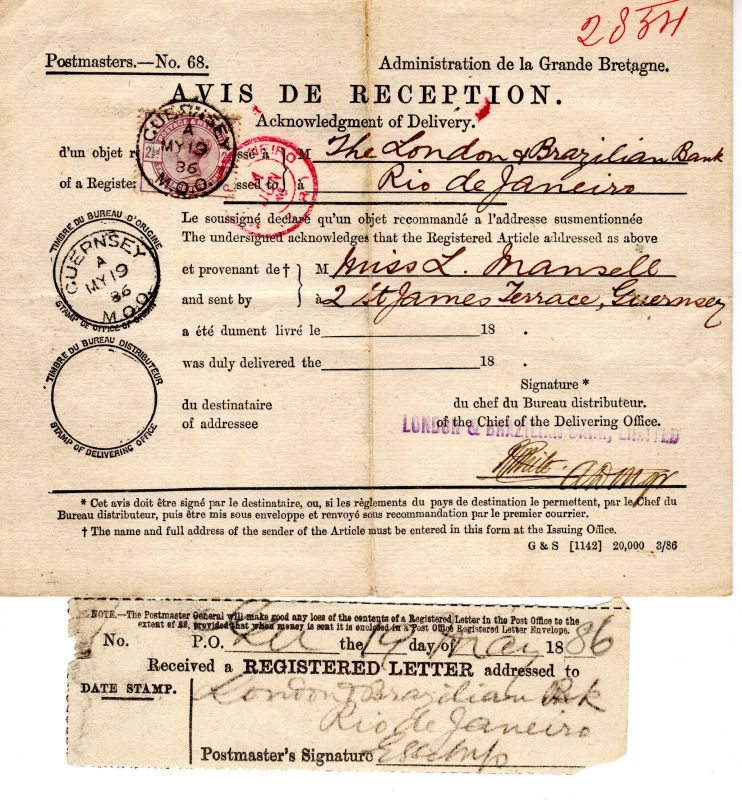 2854
Postmasters.—No. 68.
Administration de la Grande Bretagne.
AVIS DE RECEPTION.
Acknowledgment of Delivery.
GUERNSEY
A
MY 19
86
M.O.O.
2½
d'un objet r
ssé à } M The London & Brazilian Bank
of a Register
essed to } à Rio de Janeiro
Le soussigné declaré qu'un objet recommandé a l'addresse susmentionnée
The undersigned acknowledges that the Registered Article addressed as above
TIMBRE DU BUREAU D'ORIGINE
GUERNSEY
A
MY 19
86
M.O.O.
STAMP OF OFFICE OF ORIGIN
et provenant de † } M Miss L. Mansell
and sent by } à 2 St James Terrace, Guernsey
a été dument livré le 18 .
was duly delivered the 18 .
TIMBRE DU BUREAU DISTRIBUTEUR
STAMP OF DELIVERING OFFICE
du destinataire
of addressee
Signature *
du chef du Bureau distributeur.
of the Chief of the Delivering Office.
LONDON & BRAZILIAN BANK, LIMITED
* Cet avis doit être signé par le destinataire, ou, si les règlements du pays de destination le permettent, par le Chef du
Bureau distributeur, puis être mis sous enveloppe et renvoyé sous recommandation par le premier courrier.
† The name and full address of the sender of the Article must be entered in this form at the Issuing Office.
G & S [1142] 20,000 3/86
NOTE.—The Postmaster General will make good any loss of the contents of a Registered Letter in the Post Office to the
extent of £2, provided that when money is sent it is enclosed in a Post Office Registered Letter Envelope.
No. P.O. the 19 day of May 1886
Received a REGISTERED LETTER addressed to
DATE STAMP.
London & Brazilian Bk
Rio de Janeiro
Postmaster's Signature